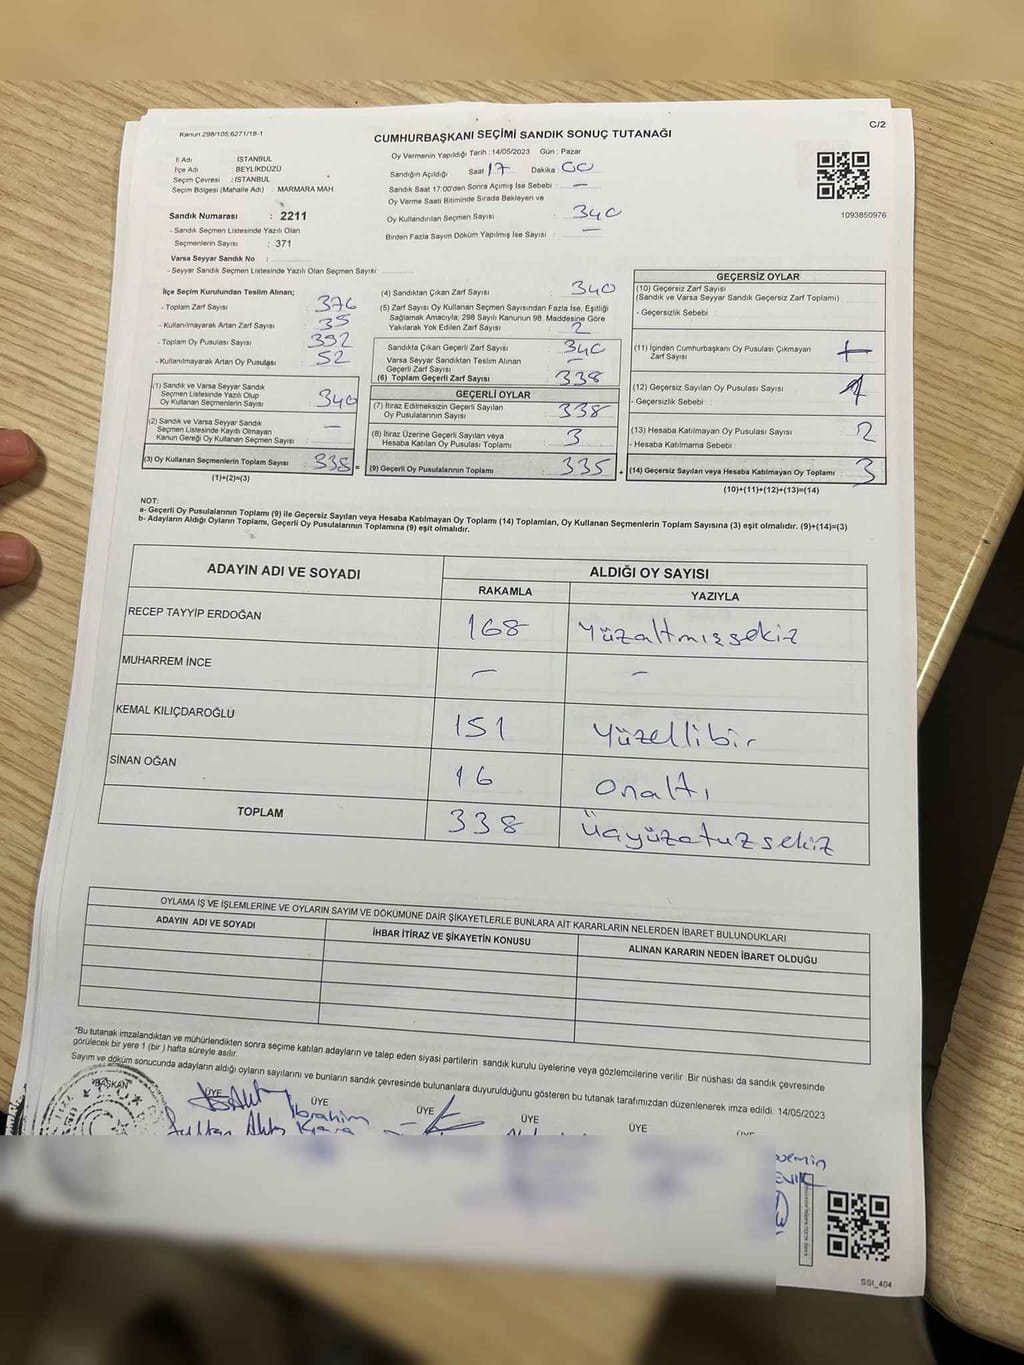 Kanun.298/105,6271/18-1
C/2
CUMHURBAŞKANI SEÇİMİ SANDIK SONUÇ TUTANAĞI
İl Adı : İSTANBUL
İlçe Adı : BEYLİKDÜZÜ
Seçim Çevresi : İSTANBUL
Seçim Bölgesi (Mahalle Adı) : MARMARA MAH.
Sandık Numarası : 2211
- Sandık Seçmen Listesinde Yazılı Olan
Seçmenlerin Sayısı : 371
Varsa Seyyar Sandık No :
- Seyyar Sandık Seçmen Listesinde Yazılı Olan Seçmen Sayısı
Oy Vermenin Yapıldığı Tarih : 14/05/2023 Gün : Pazar
Sandığın Açıldığı Saat 17 Dakika : 00
Sandık Saat 17:00'den Sonra Açılmış İse Sebebi : —
Oy Verme Saati Bitiminde Sırada Bekleyen ve
Oy Kullandırılan Seçmen Sayısı 340
Birden Fazla Sayım Döküm Yapılmış İse Sayısı : —
1093850976
İlçe Seçim Kurulundan Teslim Alınan;
- Toplam Zarf Sayısı : 376
- Kullanılmayarak Artan Zarf Sayısı : 35
- Toplam Oy Pusulası Sayısı : 392
- Kullanılmayarak Artan Oy Pusulası : 52
(1) Sandık ve Varsa Seyyar Sandık
Seçmen Listesinde Yazılı Olup
Oy Kullanan Seçmenlerin Sayısı : 340
(2) Sandık ve Varsa Seyyar Sandık
Seçmen Listesinde Kayıtlı Olmayan
Kanun Gereği Oy Kullanan Seçmen Sayısı : —
(3) Oy Kullanan Seçmenlerin Toplam Sayısı : 338 =
(1)+(2)=(3)
(4) Sandıktan Çıkan Zarf Sayısı : 340
(5) Zarf Sayısı Oy Kullanan Seçmen Sayısından Fazla İse, Eşitliği
Sağlamak Amacıyla; 298 Sayılı Kanunun 98. Maddesine Göre
Yakılarak Yok Edilen Zarf Sayısı : 2
Sandıkta Çıkan Geçerli Zarf Sayısı : 340
Varsa Seyyar Sandıktan Teslim Alınan
Geçerli Zarf Sayısı : —
(6) Toplam Geçerli Zarf Sayısı : 338
GEÇERLİ OYLAR
(7) İtiraz Edilmeksizin Geçerli Sayılan
Oy Pusulalarının Sayısı : 338
(8) İtiraz Üzerine Geçerli Sayılan veya
Hesaba Katılan Oy Pusulası Toplamı : 3
(9) Geçerli Oy Pusulalarının Toplamı : 335 +
GEÇERSİZ OYLAR
(10) Geçersiz Zarf Sayısı
(Sandık ve Varsa Seyyar Sandık Geçersiz Zarf Toplamı)
- Geçersizlik Sebebi :
(11) İçinden Cumhurbaşkanı Oy Pusulası Çıkmayan
Zarf Sayısı :
(12) Geçersiz Sayılan Oy Pusulası Sayısı :
- Geçersizlik Sebebi :
(13) Hesaba Katılmayan Oy Pusulası Sayısı : 2
- Hesaba Katılmama Sebebi :
(14) Geçersiz Sayılan veya Hesaba Katılmayan Oy Toplamı : 3
(10)+(11)+(12)+(13)=(14)
NOT:
a- Geçerli Oy Pusulalarının Toplamı (9) ile Geçersiz Sayılan veya Hesaba Katılmayan Oy Toplamı (14) Toplamları, Oy Kullanan Seçmenlerin Toplam Sayısına (3) eşit olmalıdır. (9)+(14)=(3)
b- Adayların Aldığı Oyların Toplamı, Geçerli Oy Pusulalarının Toplamına (9) eşit olmalıdır.
ADAYIN ADI VE SOYADI ALDIĞI OY SAYISI
RAKAMLA YAZIYLA
RECEP TAYYİP ERDOĞAN 168 Yüzaltmışsekiz
MUHARREM İNCE — —
KEMAL KILIÇDAROĞLU 151 Yüzellibir
SİNAN OĞAN 16 Onaltı
TOPLAM 338 Üçyüzotuzsekiz
OYLAMA İŞ VE İŞLEMLERİNE VE OYLARIN SAYIM VE DÖKÜMÜNE DAİR ŞİKAYETLERLE BUNLARA AİT KARARLARIN NELERDEN İBARET BULUNDUKLARI
ADAYIN ADI VE SOYADI İHBAR İTİRAZ VE ŞİKAYETİN KONUSU ALINAN KARARIN NEDEN İBARET OLDUĞU
*Bu tutanak imzalandıktan ve mühürlendikten sonra seçime katılan adayların ve talep eden siyasi partilerin sandık kurulu üyelerine veya gözlemcilerine verilir. Bir nüshası da sandık çevresinde
görülecek bir yere 1 (bir ) hafta süreyle asılır.
Sayım ve döküm sonucunda adayların aldığı oyların sayılarını ve bunların sandık çevresinde bulunanlara duyurulduğunu gösteren bu tutanak tarafımızdan düzenlenerek imza edildi. 14/05/2023
BAŞKAN ÜYE ÜYE ÜYE ÜYE ÜYE ÜYE
İbrahim
Kara
SSI_404